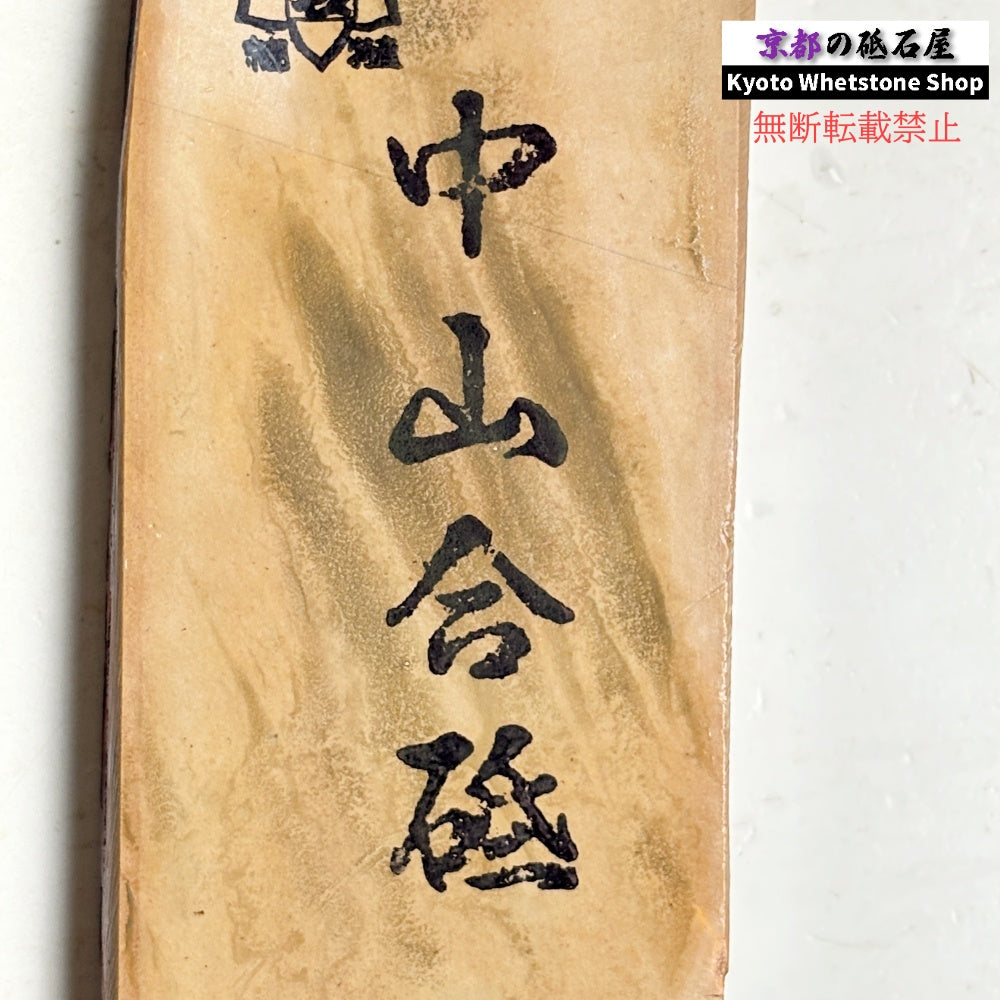 京都の砥石屋
Kyoto Whetstone Shop
無断転載禁止
中山合砥